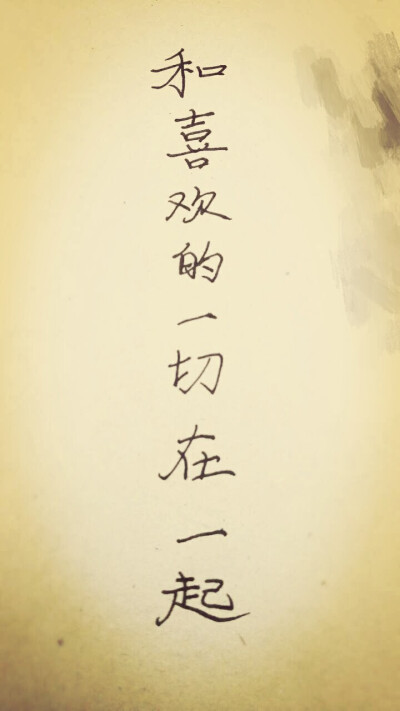 和喜欢的一切在一起